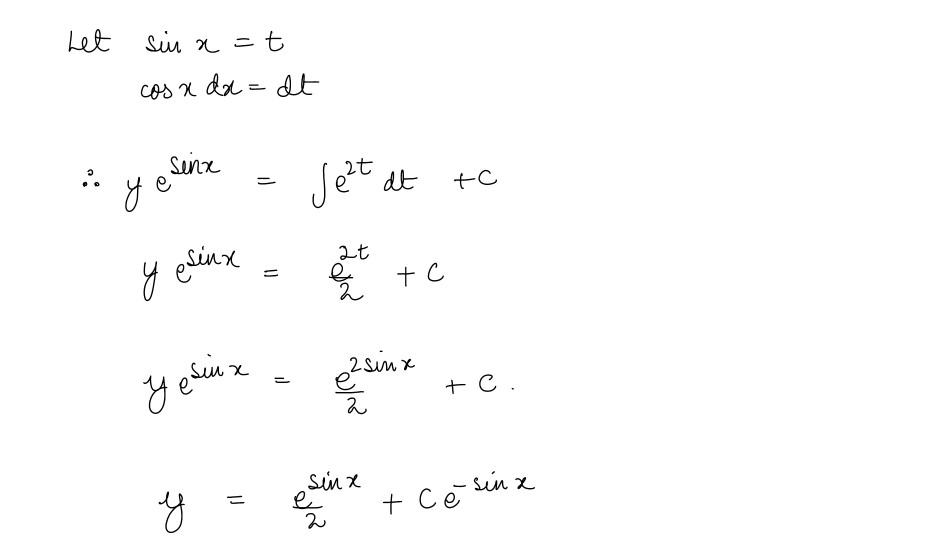 Let sin x = t
cos x dx = dt
∴ y e^{sin x} = ∫ e^{2t} dt + C
y e^{sin x} = e^{2t}/2 + C
y e^{sin x} = e^{2 sin x}/2 + C .
y = e^{sin x}/2 + C e^{- sin x}